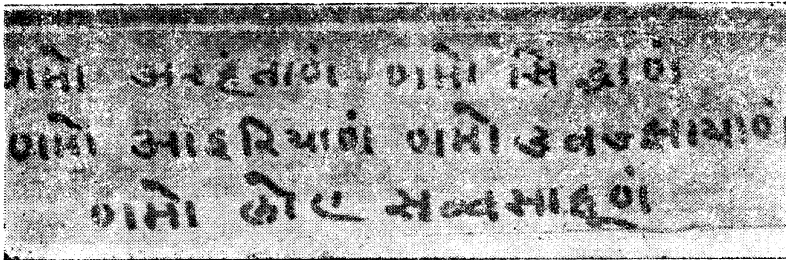 ણમો અરહંતાણં ણમો સિદ્ધાણં
ણમો આઇરિયાણં ણમો ઉવજ્ઝાયાણં
ણમો લોએ સવ્વસાહૂણં